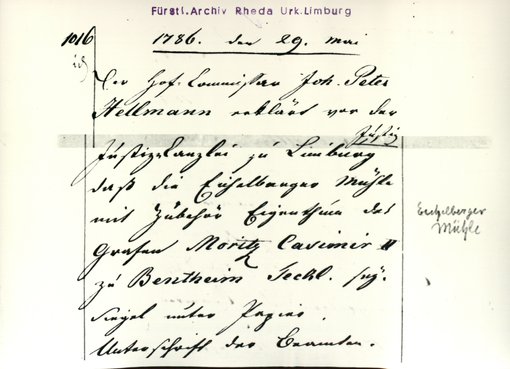 Fürstl. Archiv Rheda Urk. Limburg
1016
1786. den 29. Mai
Der Hof-Commissar Joh. Peter
Hellmann erklärt vor der
Justiz
Justiz-Canzlei zu Limburg
daß die Eichelberger Mühle
mit Zubehör Eigenthum des
Grafen Moritz Casimir II
zu Bentheim Teckl. sey.
Siegel unter Papier.
Unterschrift der Beamten.
Eichelberger
Mühle